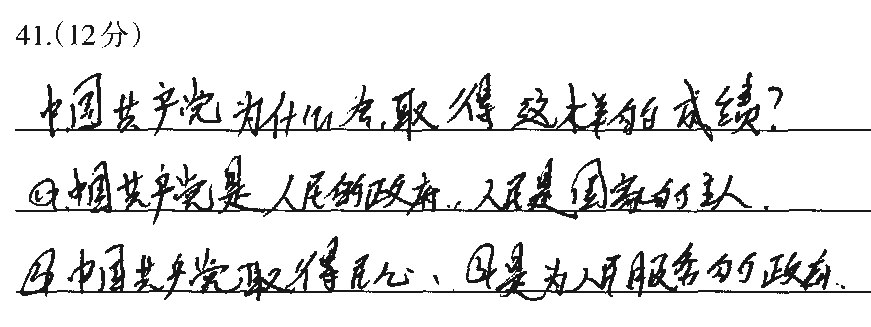 41.(12分)
中国共产党为什么会取得这样的成绩?
①中国共产党是人民的政府.,人民是国家的主人.
②中国共产党取得民心、④是为人民服务的政府.